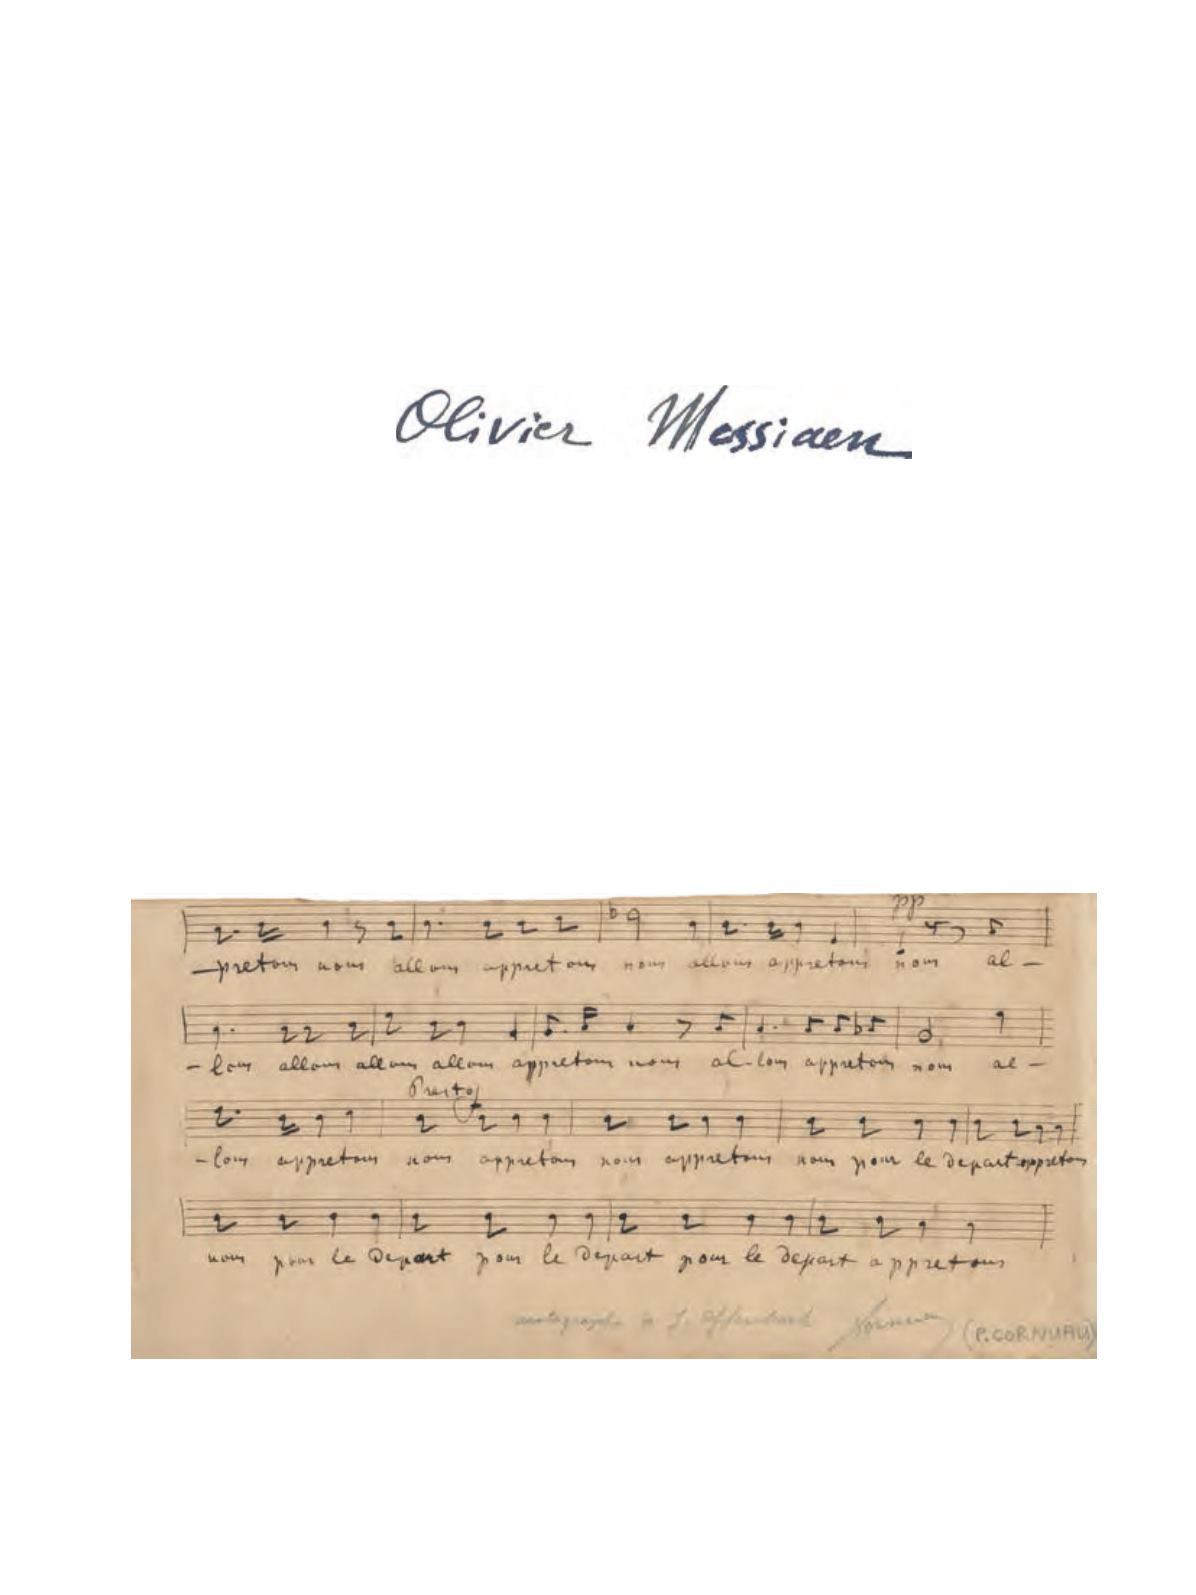 Olivier Messiaen
pp
-pretons nous allons appretons nous allons appretons nous al-
-lons allons allons allons appretons nous al-lons appretons nous al-
Presto
-lons appretons nous appretons nous appretons nous pour le depart appretons
nous pour le depart pour le depart pour le depart appretons
autographe de J. Offenbach Cornuau (P. CORNUAU)